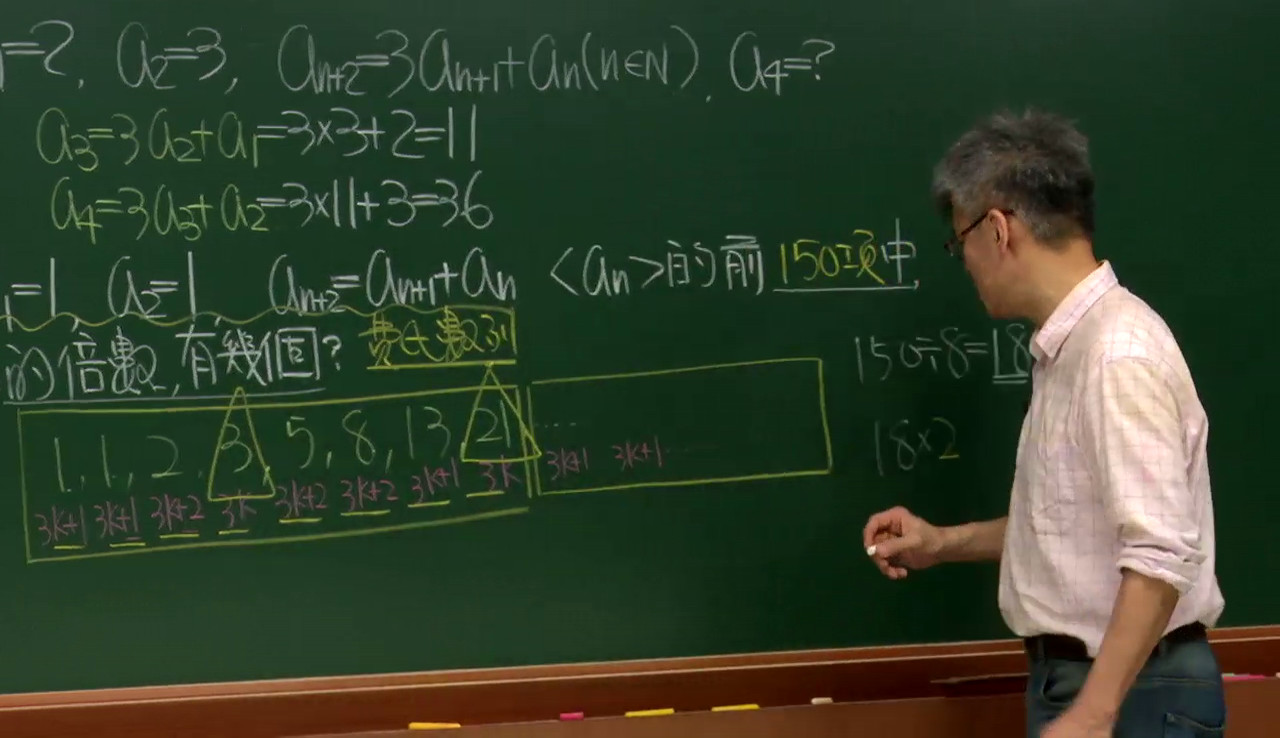 =2, a₂=3, aₙ₊₂=3aₙ₊₁+aₙ(n∈N), a₄=?
a₃=3a₂+a₁=3×3+2=11
a₄=3a₃+a₂=3×11+3=36
₁=1, a₂=1, aₙ₊₂=aₙ₊₁+aₙ <aₙ>的前150項中,
的倍數,有幾個? 費氏數列
150÷8=18
1,1,2,3,5,8,13,21 ....
18×2
3k+1 3k+1 3k+2 3k 3k+2 3k+2 3k+1 3k 3k+1 3k+1 ...